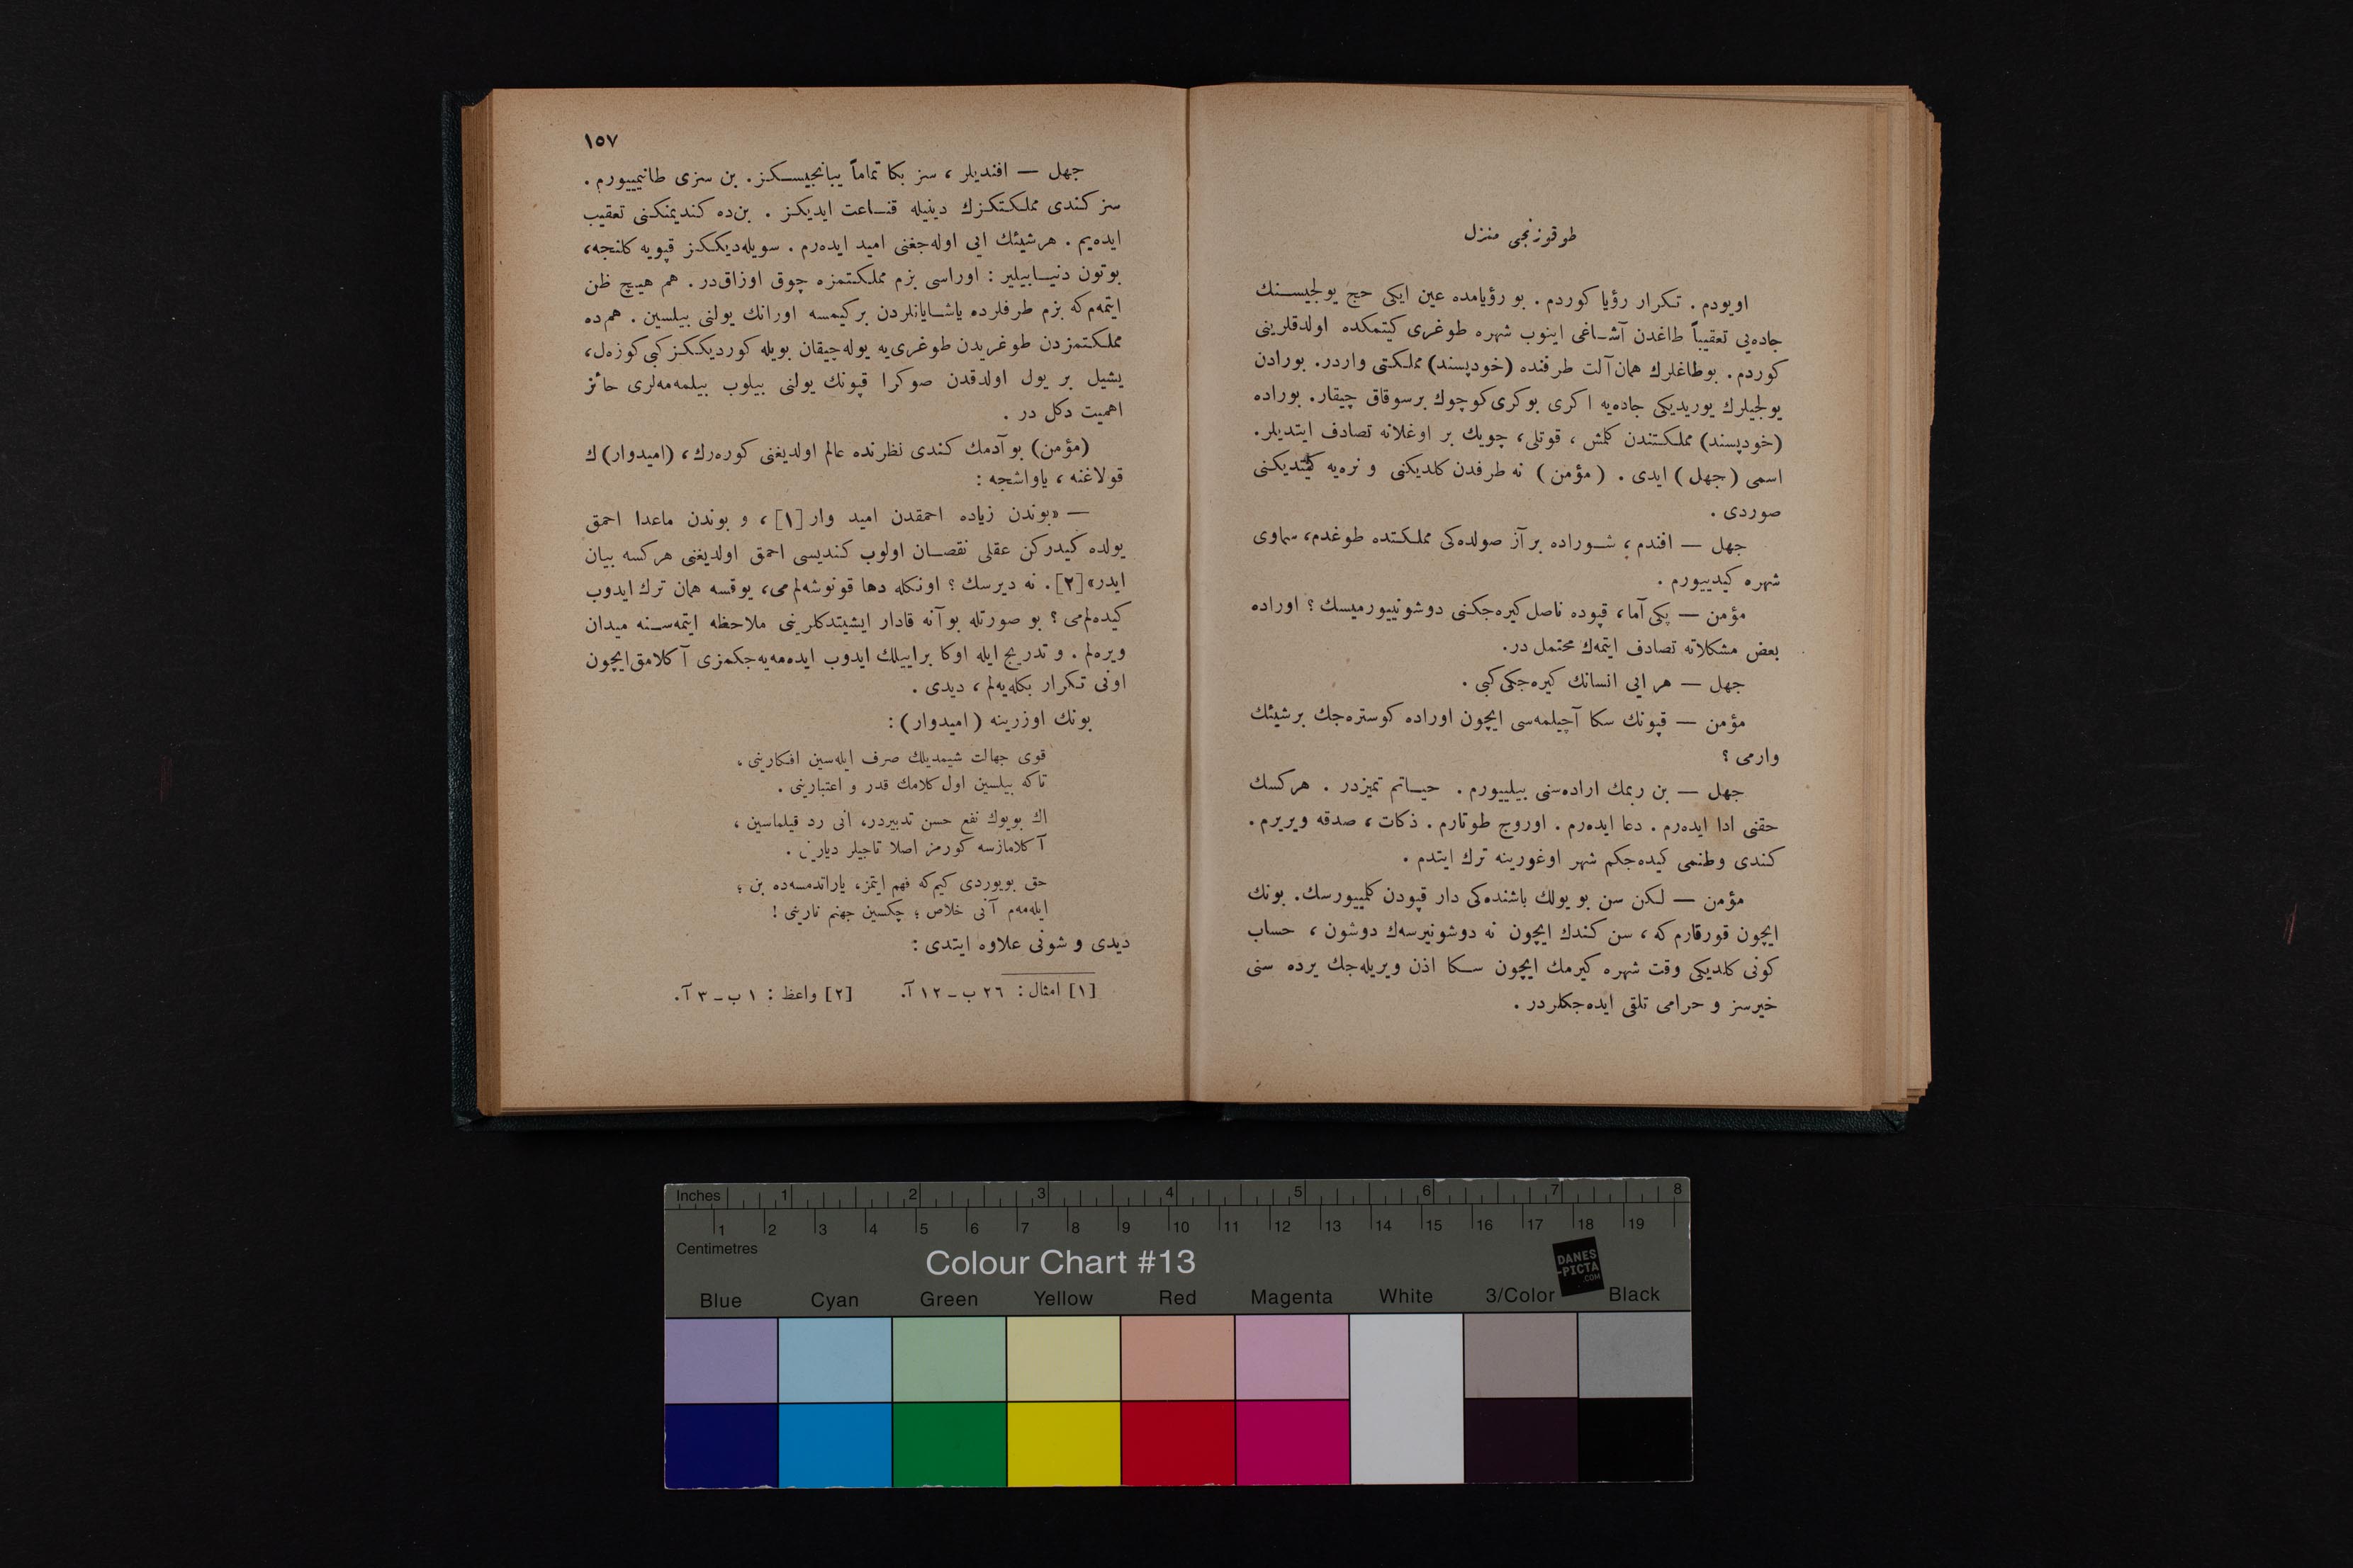 طوقوزنجی منزل
اویودم . تکرار رؤیا کوردم . بو رؤیامده عین ایکی حج یولجیسنك
جاده‌یی تعقیباً طاغدن آشاغی اینوب شهره طوغری کیتمکده اولدقلرینی
کوردم . بوطاغلرك همان آلت طرفنده (خودپسند) مملکتی واردر. بورادن
یولجیلرك یوریدیکی جاده‌یه اکری بوکری کوچوك برسوقاق چیقار. بوراده
(خودپسند) مملکتندن کلمش ، قوتلی، چویك بر اوغلانه تصادف ایتدیلر.
اسمی (جهل) ایدی . (مؤمن) نه طرفدن کلدیکنی و نره‌یه کیتدیکنی
صوردی .
جهل — افندم ، شوراده برآز صولده‌کی مملکتده طوغدم، سماوی
شهره کیدییورم .
مؤمن — پکی آما، قپوده ناصل کیره‌جکنی دوشونییورمیسك ؟ اوراده
بعض مشکلاته تصادف ایتمه‌ك محتمل در.
جهل — هر ایی انسانك کیره‌جکی کبی .
مؤمن — قپونك سکا آچیلمه‌سی ایچون اوراده کوستره‌جك برشیئك
وارمی ؟
جهل — بن ربمك اراده‌سنی بیلییورم . حیاتم تمیزدر . هرکسك
حقنی ادا ایده‌رم . دعا ایده‌رم . اوروج طوتارم . ذکات ، صدقه ویریرم .
کندی وطنمی کیده‌جکم شهر اوغورینه ترك ایتدم .
مؤمن — لکن سن بو یولك باشنده‌کی دار قپودن کلمییورسك. بونك
ایچون قورقارم‌که ، سن کندك ایچون نه دوشونیرسه‌ك دوشون ، حساب
کونی کلدیکی وقت شهره کیرمك ایچون سکا اذن ویریله‌جك یرده سنی
خیرسز و حرامی تلقی ایده‌جکلردر .
١٥٧
جهل — افندیلر ، سز بکا تماماً یبانجیسکز. بن سزی طانیمییورم .
سز کندی مملکتکزك دینیله قناعت ایدیکز . بن‌ده کندیمنکنی تعقیب
ایده‌یم . هرشیئك ایی اوله‌جغنی امید ایده‌رم . سویله‌دیککز قپویه کلنجه،
بوتون دنیا بیلیر : اوراسی بزم مملکتمزه چوق اوزاق‌در . هم هیچ ظن
ایتمه‌م‌که بزم طرفلرده یاشایانلردن برکیمسه اورانك یولنی بیلسین . هم‌ده
مملکتمزدن طوغریدن طوغری‌یه یوله‌چیقان بویله کوردیککز کبی کوزه‌ل،
یشیل بر یول اولدقدن صوکرا قپونك یولنی بیلوب بیلمه‌مه‌لری حائز
اهمیت دکل در .
(مؤمن) بو آدمك کندی نظرنده عالم اولدیغنی کوره‌رك، (امیدوار) ك
قولاغنه ، یاواشجه :
— «بوندن زیاده احمقدن امید وار [١] ، و بوندن ماعدا احمق
یولده کیدرکن عقلی نقصان اولوب کندیسی احمق اولدیغنی هرکسه بیان
ایدر» [٢] . نه دیرسك ؟ اونکله دها قونوشه‌لم‌می، یوقسه همان ترك ایدوب
کیده‌لم‌می ؟ بو صورتله بو آنه قادار ایشیتدکلرینی ملاحظه ایتمه‌سنه میدان
ویره‌لم . و تدریج ایله اوکا برایبلك ایدوب ایده‌مه‌یه‌جکمزی آکلامق ایچون
اونی تکرار بکله‌یه‌لم ، دیدی .
بونك اوزرینه (امیدوار) :
قوی جهالت شیمدیلك صرف ایله‌سین افکارینی ،
تاکه بیلسین اول کلامك قدر و اعتبارینی .
اك بویوك نفع حسن تدبیردر، انی رد قیلماسین ،
آکلامازسه کورمز اصلا تاجیلر دیارین .
حق بویوردی کیم‌که فهم ایتمز، یاراتدمسه‌ده بن ؛
ایله‌مه‌م آنی خلاص ؛ چکسین جهنم نارینی !
دیدی و شونی علاوه ایتدی :
[١] امثال : ٢٦ ب ـ ١٢ آ. [٢] واعظ : ١٠ ب ـ ٣ آ.
Inches 1 2 3 4 5 6 7 8
1 2 3 4 5 6 7 8 9 10 11 12 13 14 15 16 17 18 19
Centimetres
Colour Chart #13
DANES
-PICTA
.COM
Blue Cyan Green Yellow Red Magenta White 3/Color Black